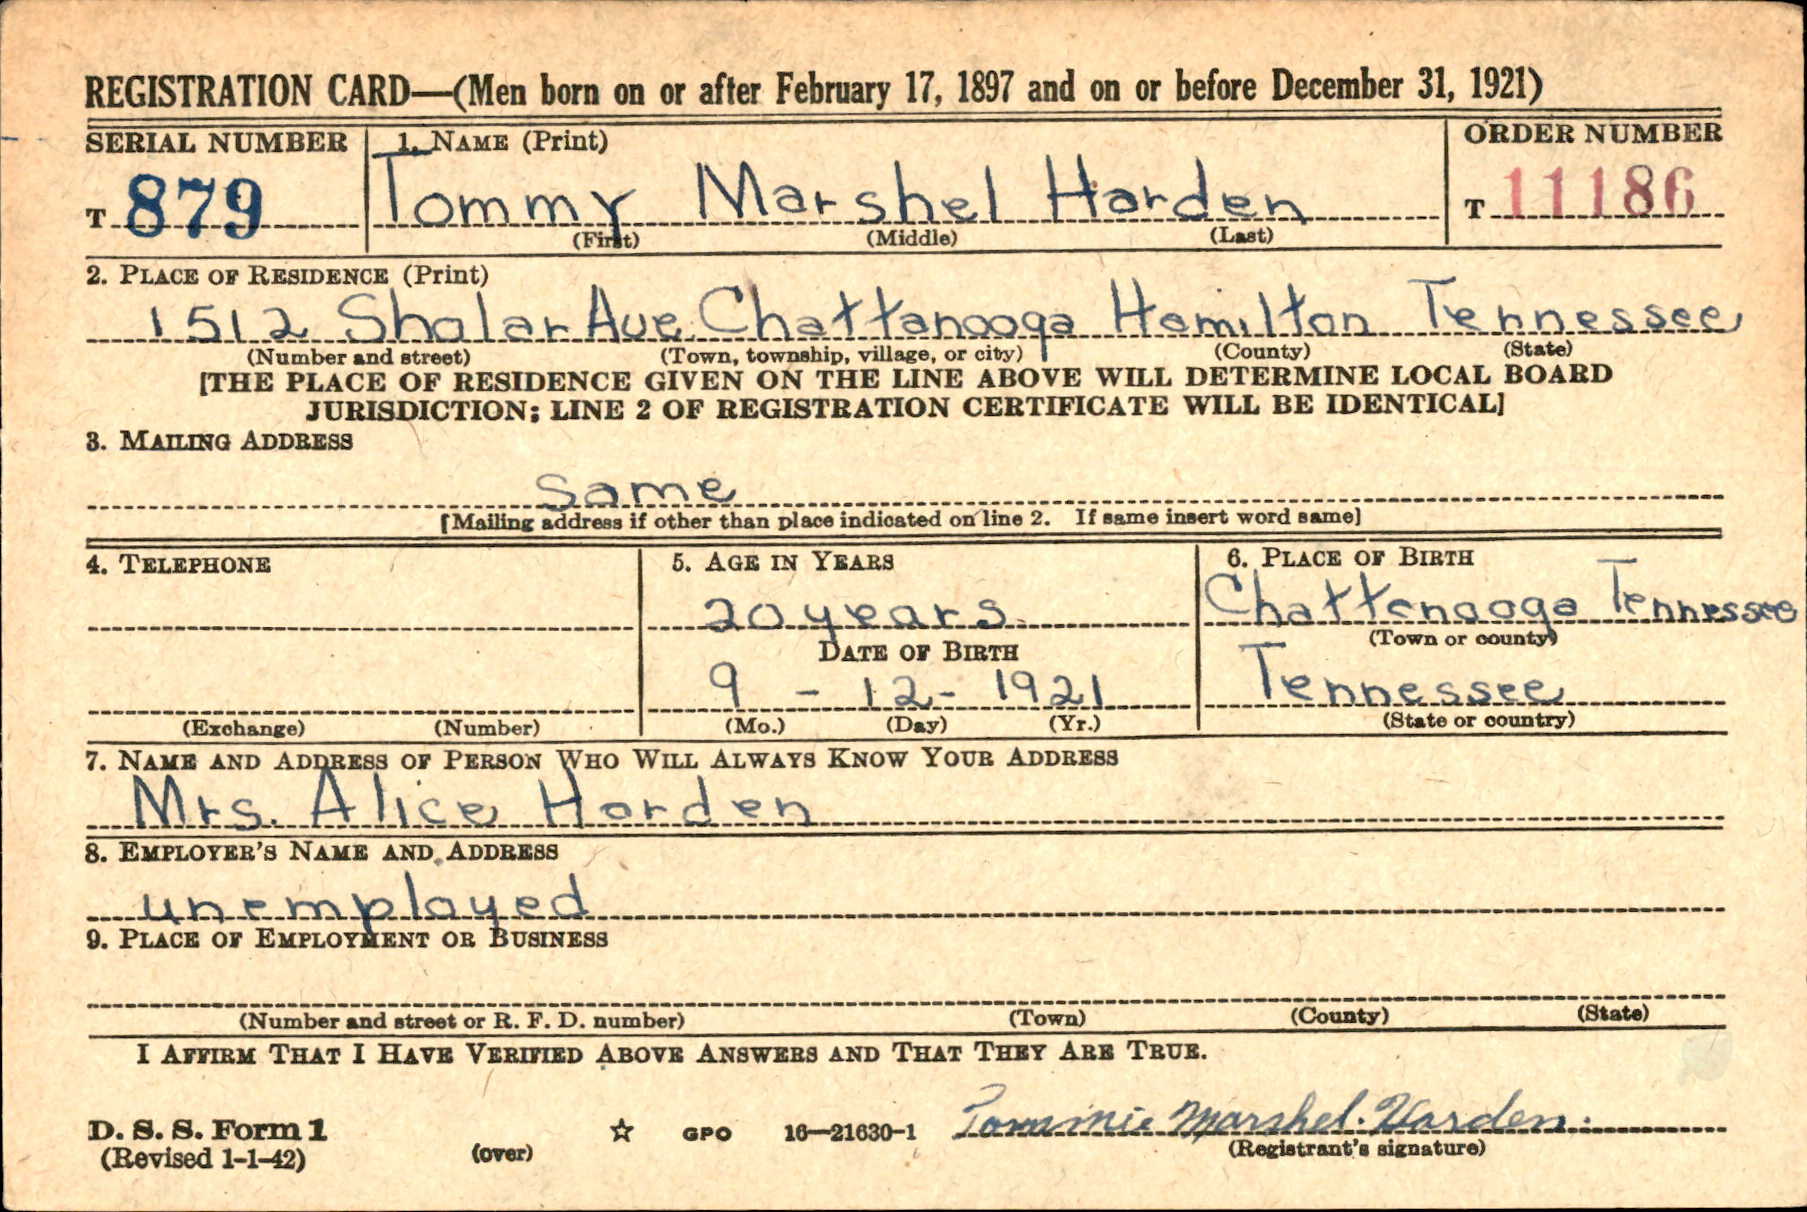 REGISTRATION CARD—(Men born on or after February 17, 1897 and on or before December 31, 1921)
SERIAL NUMBER 1. NAME (Print) ORDER NUMBER
T 879 Tommy Marshel Harden T 11186
(First) (Middle) (Last)
2. PLACE OF RESIDENCE (Print)
1512 Sholar Ave Chattanooga Hamilton Tennessee
(Number and street) (Town, township, village, or city) (County) (State)
[THE PLACE OF RESIDENCE GIVEN ON THE LINE ABOVE WILL DETERMINE LOCAL BOARD
JURISDICTION; LINE 2 OF REGISTRATION CERTIFICATE WILL BE IDENTICAL]
3. MAILING ADDRESS
same
[Mailing address if other than place indicated on line 2. If same insert word same]
4. TELEPHONE 5. AGE IN YEARS 6. PLACE OF BIRTH
20 years Chattanooga Tennessee
DATE OF BIRTH (Town or county)
9 - 12 - 1921 Tennessee
(Exchange) (Number) (Mo.) (Day) (Yr.) (State or country)
7. NAME AND ADDRESS OF PERSON WHO WILL ALWAYS KNOW YOUR ADDRESS
Mrs. Alice Harden
8. EMPLOYER'S NAME AND ADDRESS
unemployed
9. PLACE OF EMPLOYMENT OR BUSINESS
(Number and street or R. F. D. number) (Town) (County) (State)
I AFFIRM THAT I HAVE VERIFIED ABOVE ANSWERS AND THAT THEY ARE TRUE.
D. S. S. Form 1 GPO 16—21630-1 Tommie Marshel. Harden.
(Revised 1-1-42) (over) (Registrant's signature)